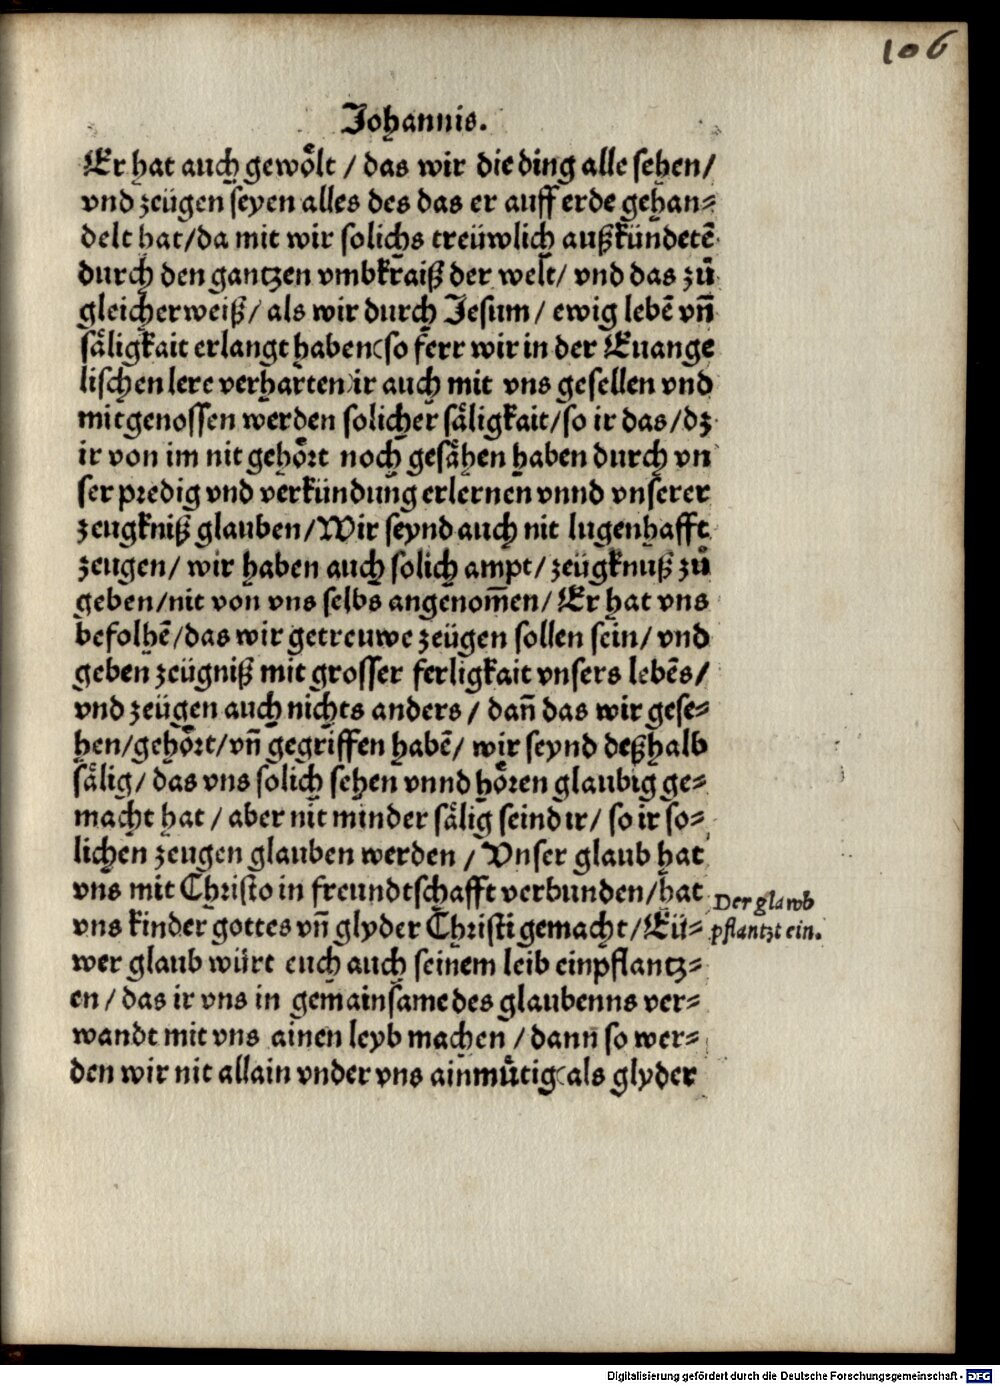 106
Johannis.
Er hat auch gewoͤlt / das wir die ding alle sehen /
vnd zeügen seyen alles des das er auff erde gehan⸗
delt hat / da mit wir solichs treüwlich außkündetẽ
durch den gantzen vmbkraiß der welt / vnd das zuͦ
gleicherweiß / als wir durch Jesum / ewig lebẽ vñ
saͤligkait erlangt haben (so ferr wir in der Euange
lischen lere verharten) ir auch mit vns gesellen vnd
mitgenossen werden solicher saͤligkait / so ir das / dz
ir von im nit gehoͤrt noch gesaͤhen haben durch vn
ser predig vnd verkündung erlernen vnnd vnserer
zeugkniß glauben / Wir seynd auch nit lugenhafft
zeugen / wir haben auch solich ampt / zeügknuß zuͦ
geben / nit von vns selbs angenom̃en / Er hat vns
befolhẽ / das wir getreuwe zeügen sollen sein / vnd
geben zeügniß mit grosser ferligkait vnsers lebẽs /
vnd zeügen auch nichts anders / dañ das wir gese⸗
hen / gehoͤrt / vñ gegriffen habẽ / wir seynd deßhalb
saͤlig / das vns solich sehen vnnd hoͤren glaubig ge⸗
macht hat / aber nit minder saͤlig seind ir / so ir so⸗
lichen zeugen glauben werden / Vnser glaub hat
vns mit Christo in freundtschafft verbunden / hat
vns kinder gottes vñ glyder Christi gemacht / Eü⸗
wer glaub würt euch auch seinem leib einpflantz⸗
en / das ir vns in gemainsame des glaubenns ver⸗
wandt mit vns ainen leyb machen / dann so wer⸗
den wir nit allain vnder vns ainmuͤtig (als glyder
Der glawb
pflantzt ein.
Digitalisierung gefördert durch die Deutsche Forschungsgemeinschaft - DFG